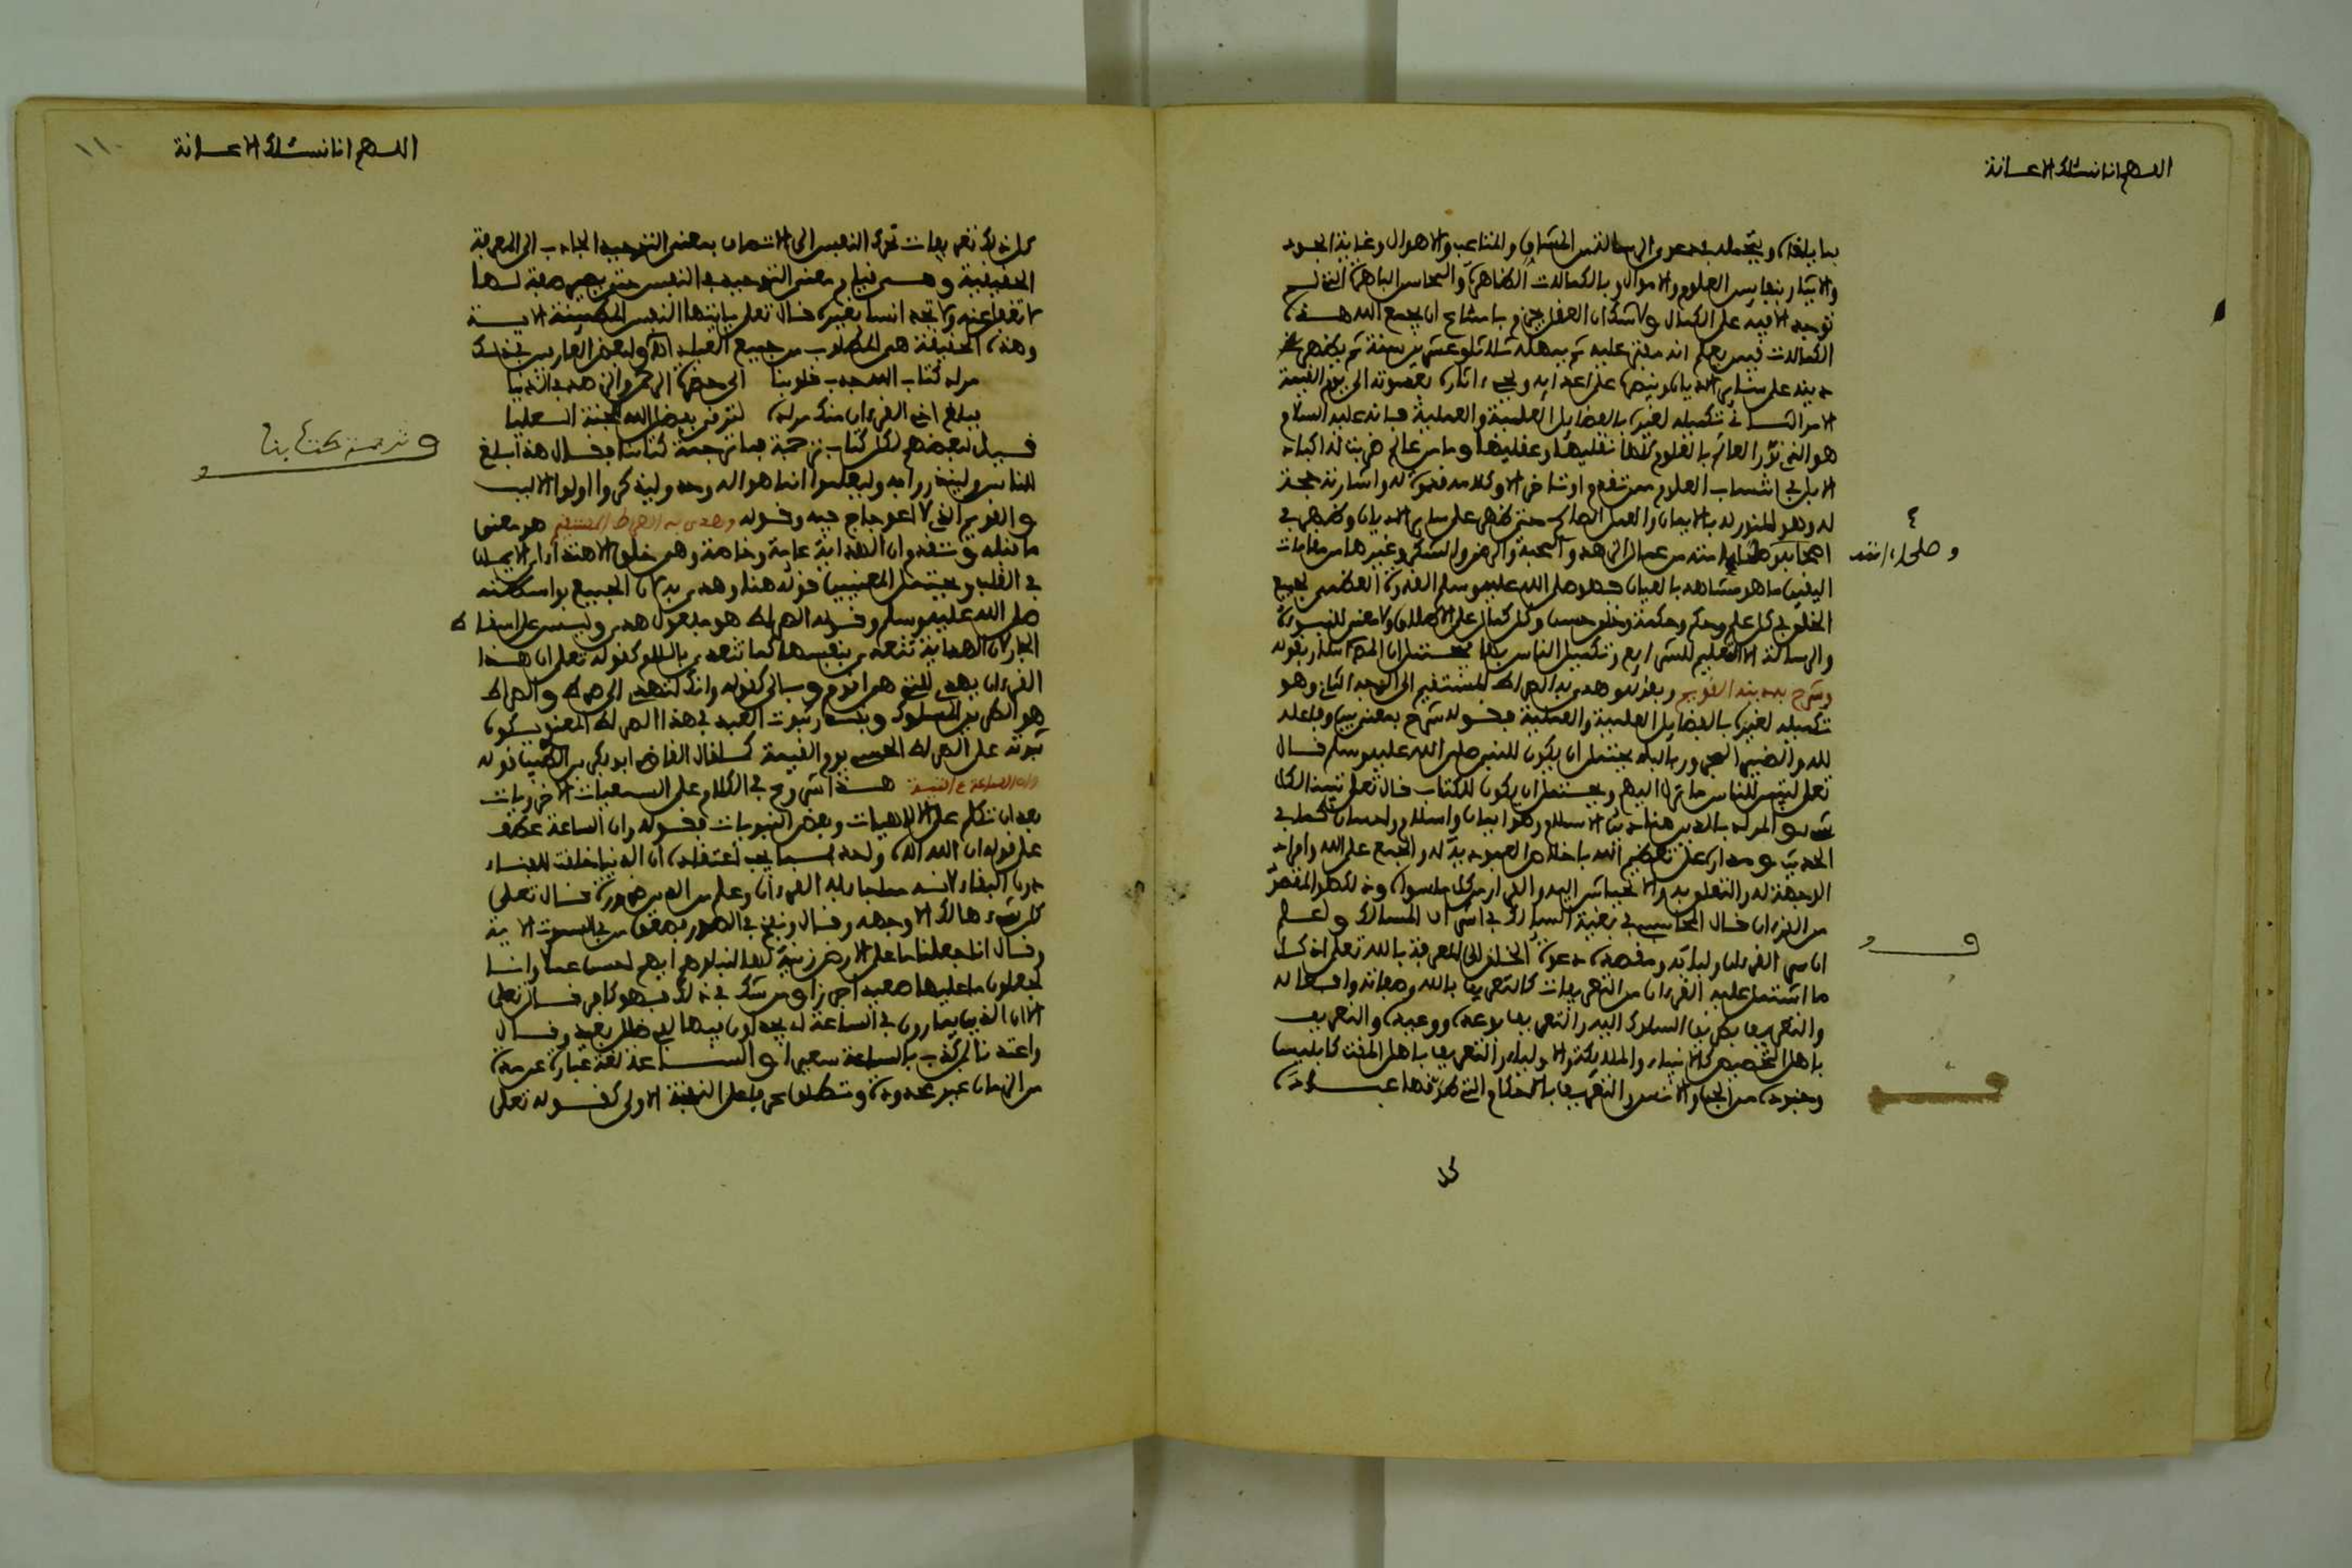 اللهم انا نسئلك الاعانة
بما يلقاه ويتحمله في دعوى الرسالة من المشاق والمتاعب والاهوال وغاية الجود
والايثار بنفايس العلوم والاموال وبالكمالات الظاهرة والمحاسن الباهرة التي لم
توجد الا فيه على الكمال ولا شك ان العقل يجزم بامتناع ان يجمع الله هذه
الكمالات فيمن يعلم انه يفتري عليه ثم يمهله ثلاثا وعشرين سنة ثم يظهر
دينه على سائر الاديان وينصره على اعدائه ويحيي اثاره بعد موته الى يوم القيمة
الامر الثاني تكميله لغيره بالفضايل العلمية والعملية فانه عليه السلام
هو الذي نور العالم بالعلوم كلها نقليها وعقليها وما من عالم ضربت له اكباد
الابل في اكتساب العلوم ممن تقدم او تاخر الا وكلامه قدوة له واشارته حجة
له وهو المنور له بالايمان والعمل الصالح حتى ظهر على ساير الاديان وظهر في
اصحابه وصلحاء امته من عمال الزهد والمحبة والرضى والشكر وغيرها من مقامات
وصلحاء امته
اليقين ما هو مشاهد بالعيان فهو صلى الله عليه وسلم القدوة العظمى لجميع
الخلق في كل علم وحكم وحكمة وخلق حسن وكل كمال على الاطلاق ولا معنى للنبوة
والرسالة الا التعليم للشرايع وتكميل الناس بها يحتمل ان المصنف اشار بقوله
وشرح به دينه القويم وبقوله وهدى به الصراط المستقيم الى الوجه الثاني وهو
تكميله لغيره بالفضايل العلمية والعملية فقوله شرح بمعنى بين وفاعله
لله والضمير المجرور بالباء يحتمل ان يكون للنبي صلى الله عليه وسلم قال
تعلى لتبين للناس ما نزل اليهم ويحتمل ان يكون للكتاب قال تعلى تبيانا لكل
شيء والمراد بالدين هنا دين الاسلام وهو ايمان واسلام واحسان كما في
الحديث ومداره على تعظيم الله باخلاص العبودية له والجمع على الله وافراد
الوجهة له والتعلق به والانحياش اليه والفرار من كل ما سواه وذلك هو المقصود
من القرءان قال المحاسبي في بغية السالك في اشرف المسالك واعلم
ان سر القرءان ولبابه ومقصده دعوة الخلق الى المعرفة بالله تعلى اذ كل
ما اشتمل عليه القرءان من التعريفات كالتعريف بالله وصفاته وافعاله
والتعريف بطريق السلوك اليه والتعريف بوعده ووعيده والتعريف
باهل التخصيص كالانبياء والملائكة والاولياء والتعريف باهل المقت كابليس
وجنوده من الجن والانس والتعريف بالاحكام التي طريقها عبادة
كل
اللهم انا نسئلك الاعانة
١١٠
كل ذلك تعريفات تحرك النفس الى الاتصاف بمعنى التوحيد الجاذب الى المعرفة
الحقيقية وهي قيام معنى التوحيد بالنفس حتى يصير صفة لها
لا تغفل عنه ولا تجد انسا بغيره قال تعلى يايتها النفس المطمئنة الاية
وهذه الحقيقة هي المطلوب من جميع العباد ولبعض العارفين في ذلك
مراد كتاب الله جذب قلوبنا الى حضرة الرحمن والزهد في الدنيا
فبلغ اخي القرءان منك مراده لترقى بفضل الله للجنة العليا
قيل لبعضهم لكل كتاب ترجمة فما ترجمة كتاب الله فقال هذا بلاغ
وترجمة كتابنا
للناس ولينذروا به وليعلموا انما هو اله واحد وليذكر اولوا الالبب
والقويم الذي لا اعوجاج فيه وقوله وهدى به الصراط المستقيم هو بمعنى
ما قبله وتقدم ان الهداية عامة وخاصة وهي خلق الاهتداء اي الايمان
في القلب ويحتمل المعنيين قوله هنا وهدى به لان الجميع بواسطته
صلى الله عليه وسلم وقوله الصراط هو مفعول هدى وليس على اسقاط
الجار لان الهداية تتعدى بنفسها كما تتعدى بالى كقوله تعلى ان هذا
القرءان يهدي للتي هي اقوم وبالى كقوله وانك لتهدي الى صراط والصراط
هو الطريق المسلوك وبقدر ثبوت العبد في هذا الصراط المعنوي يكون
ثبوته على الصراط الحسي يوم القيمة كما قال القاضي ابو بكر بن الطيب قوله
وان الساعة ءاتية هذا شروع في الكلام على السمعيات الاخرويات
بعد ان تكلم على الالهيات وبعض النبويات فقوله وان الساعة عطف
على قوله ان الله اله واحد مما يجب اعتقاده ان الدنيا خلقت للفناء
دون البقاء لانه مما جاء به القرءان وعلم من الدين ضرورة قال تعلى
كل شيء هالك الا وجهه وقال ونفخ في الصور فصعق من في السموت الاية
وقال انا جعلنا ما على الارض زينة لها لنبلوهم ايهم احسن عملا وانا
لجعلون ما عليها صعيدا جرزا ومن شك في ذلك فهو كافر قال تعلى
الا ان الذين يمارون في الساعة لفي ضلل بعيد وقال
واعتدنا لمن كذب بالساعة سعيرا والساعة لغة عبارة عن مدة
من الزمان غير محدودة وتطلق على النفخة الاولى كقوله تعلى